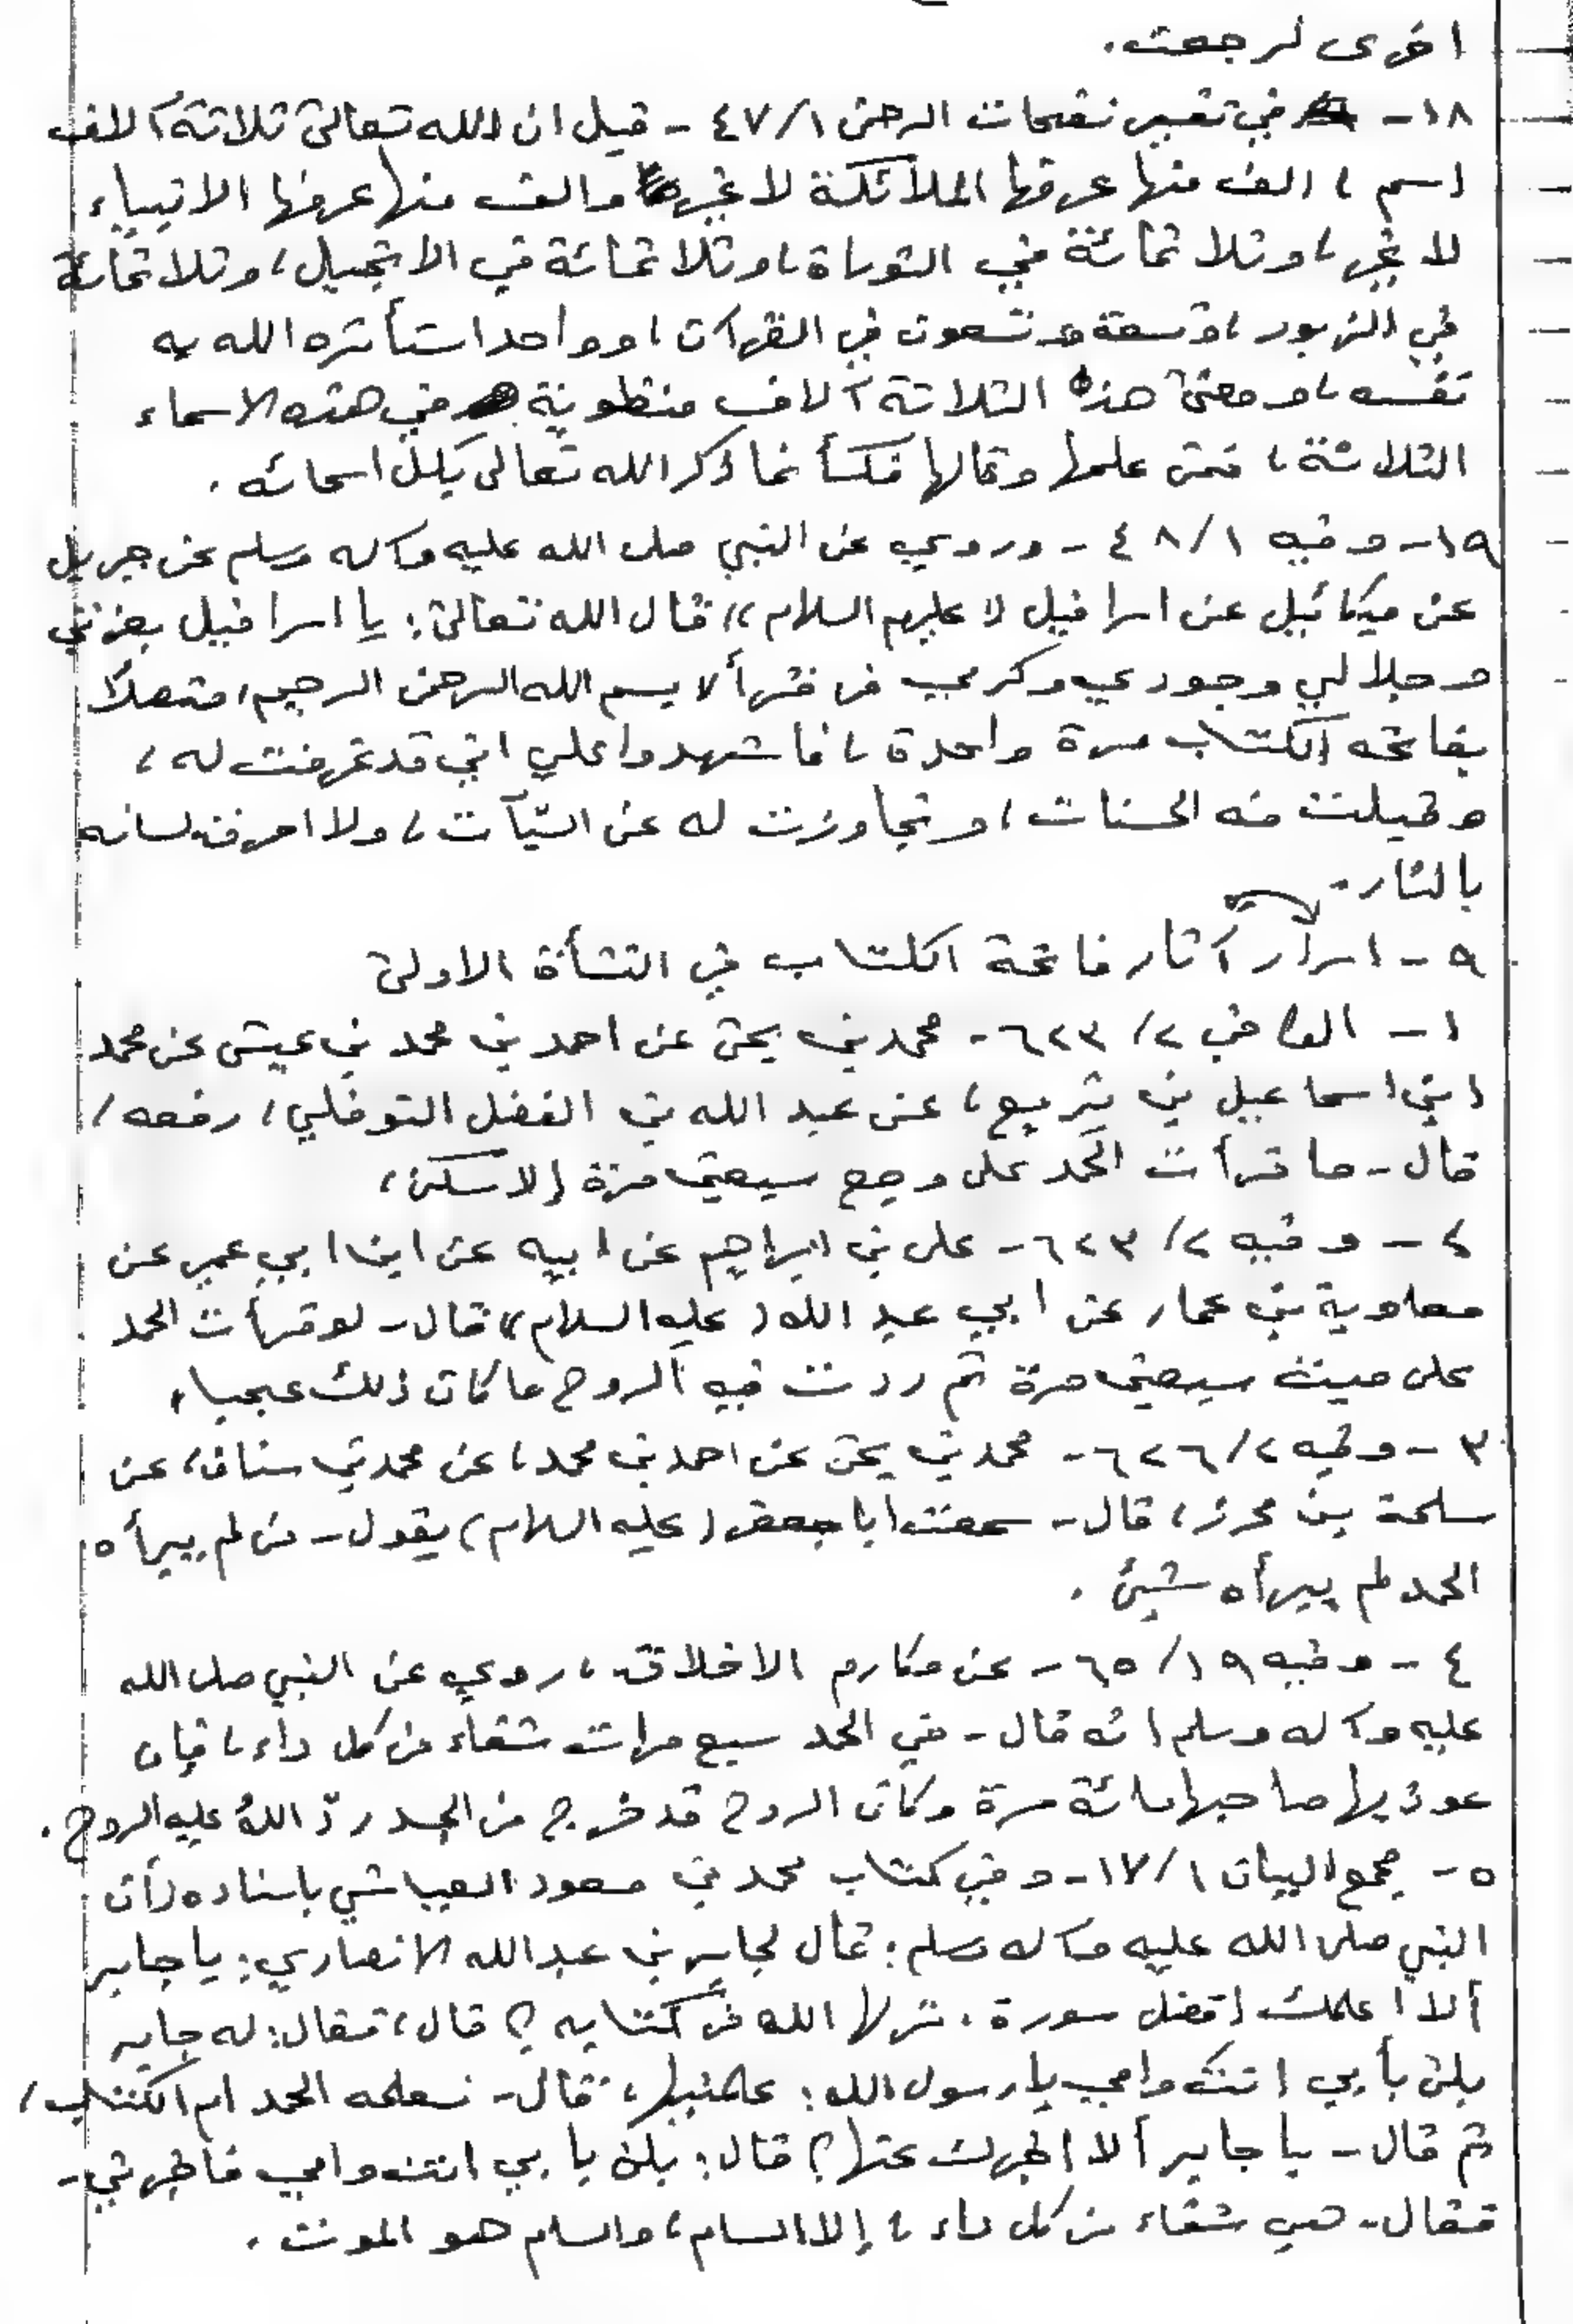 اخرى لرجعت.
١٨- في تفسير نفحات الرحمن ٤٧/١ - قيل ان لله تعالى ثلاثة آلاف
اسم، الف منها عرفها الملائكة لا غير والف منها عرفها الانبياء
لا غير، وثلاثمائة في التوراة، وثلاثمائة في الانجيل، وثلاثمائة
في الزبور، وتسعة وتسعون في القرآن، وواحد استأثره الله به
نفسه، ومعنى هذه الثلاثة آلاف منطوية في هذه الاسماء
الثلاثة، فمن علمها وقالها فكأنما ذكر الله تعالى بكل اسمائه.
١٩- وفيه ٤٨/١ - وروي عن النبي صلى الله عليه وآله وسلم عن جبريل
عن ميكائيل عن اسرافيل (عليهم السلام) قال الله تعالى: يا اسرافيل بعزتي
وجلالي وجودي وكرمي من قرأ (بسم الله الرحمن الرحيم) متصلاً
بفاتحه الكتاب مرة واحدة، فاشهدوا علي اني قد غرفت له،
وقبلت منه الحسنات، وتجاوزت له عن السيآت، ولا احرق لسانه
بالنار.
٩- اسرار آثار فاتحة الكتاب في النشأة الاولى
١- الكافي ٦٢٣/٢- محمد بن يحيى عن احمد بن محمد بن عيسى عن محمد
ابن اسماعيل بن بزيع، عن عبد الله بن الفضل النوفلي، رفعه،
قال- ما قرأت الحمد على وجع سبعين مرة إلا سكن،
٢- وفيه ٦٢٣/٢- على بن ابراهيم عن ابيه عن ابن ابي عمير عن
معاوية بن عمار عن ابي عبد الله (عليه السلام) قال- لو قرأت الحمد
على ميت سبعين مرة ثم ردت فيه الروح ما كان ذلك عجبا،
٣- وفيه ٦٢٦/٢- محمد بن يحيى عن احمد بن محمد، عن محمد بن سنان، عن
سلمة بن محرز، قال- سمعت ابا جعفر (عليه السلام) يقول- من لم يبرأه
الحمد لم يبرأه شيئ.
٤- وفيه ٦٥/١٩- عن مكارم الاخلاق، روي عن النبي صلى الله
عليه وآله وسلم انه قال- في الحمد سبع مرات شفاء من كل داء، فإن
عوذ بها صاحبها مائة مرة وكان الروح قد خرج من الجسد ردّ اللهُ عليه الروح.
٥- مجمع البيان ١٧/١- وفي كتاب محمد بن مسعود العياشي باسناده أن
النبي صلى الله عليه وآله وسلم: قال لجابر بن عبد الله الانصاري: يا جابر
ألا اعلمك افضل سورة. نزلها الله في كتابه؟ قال، فقال: له جابر
بلى بأبي انت وامي يا رسول الله: علمنيها، قال- فعلمه الحمد ام الكتاب،
ثم قال- يا جابر ألا اخبرك عنها؟ قال: بلى بابي انت وامي فاخبرني-
فقال- هي شفاء من كل داء، إلا السام، والسام هو الموت.